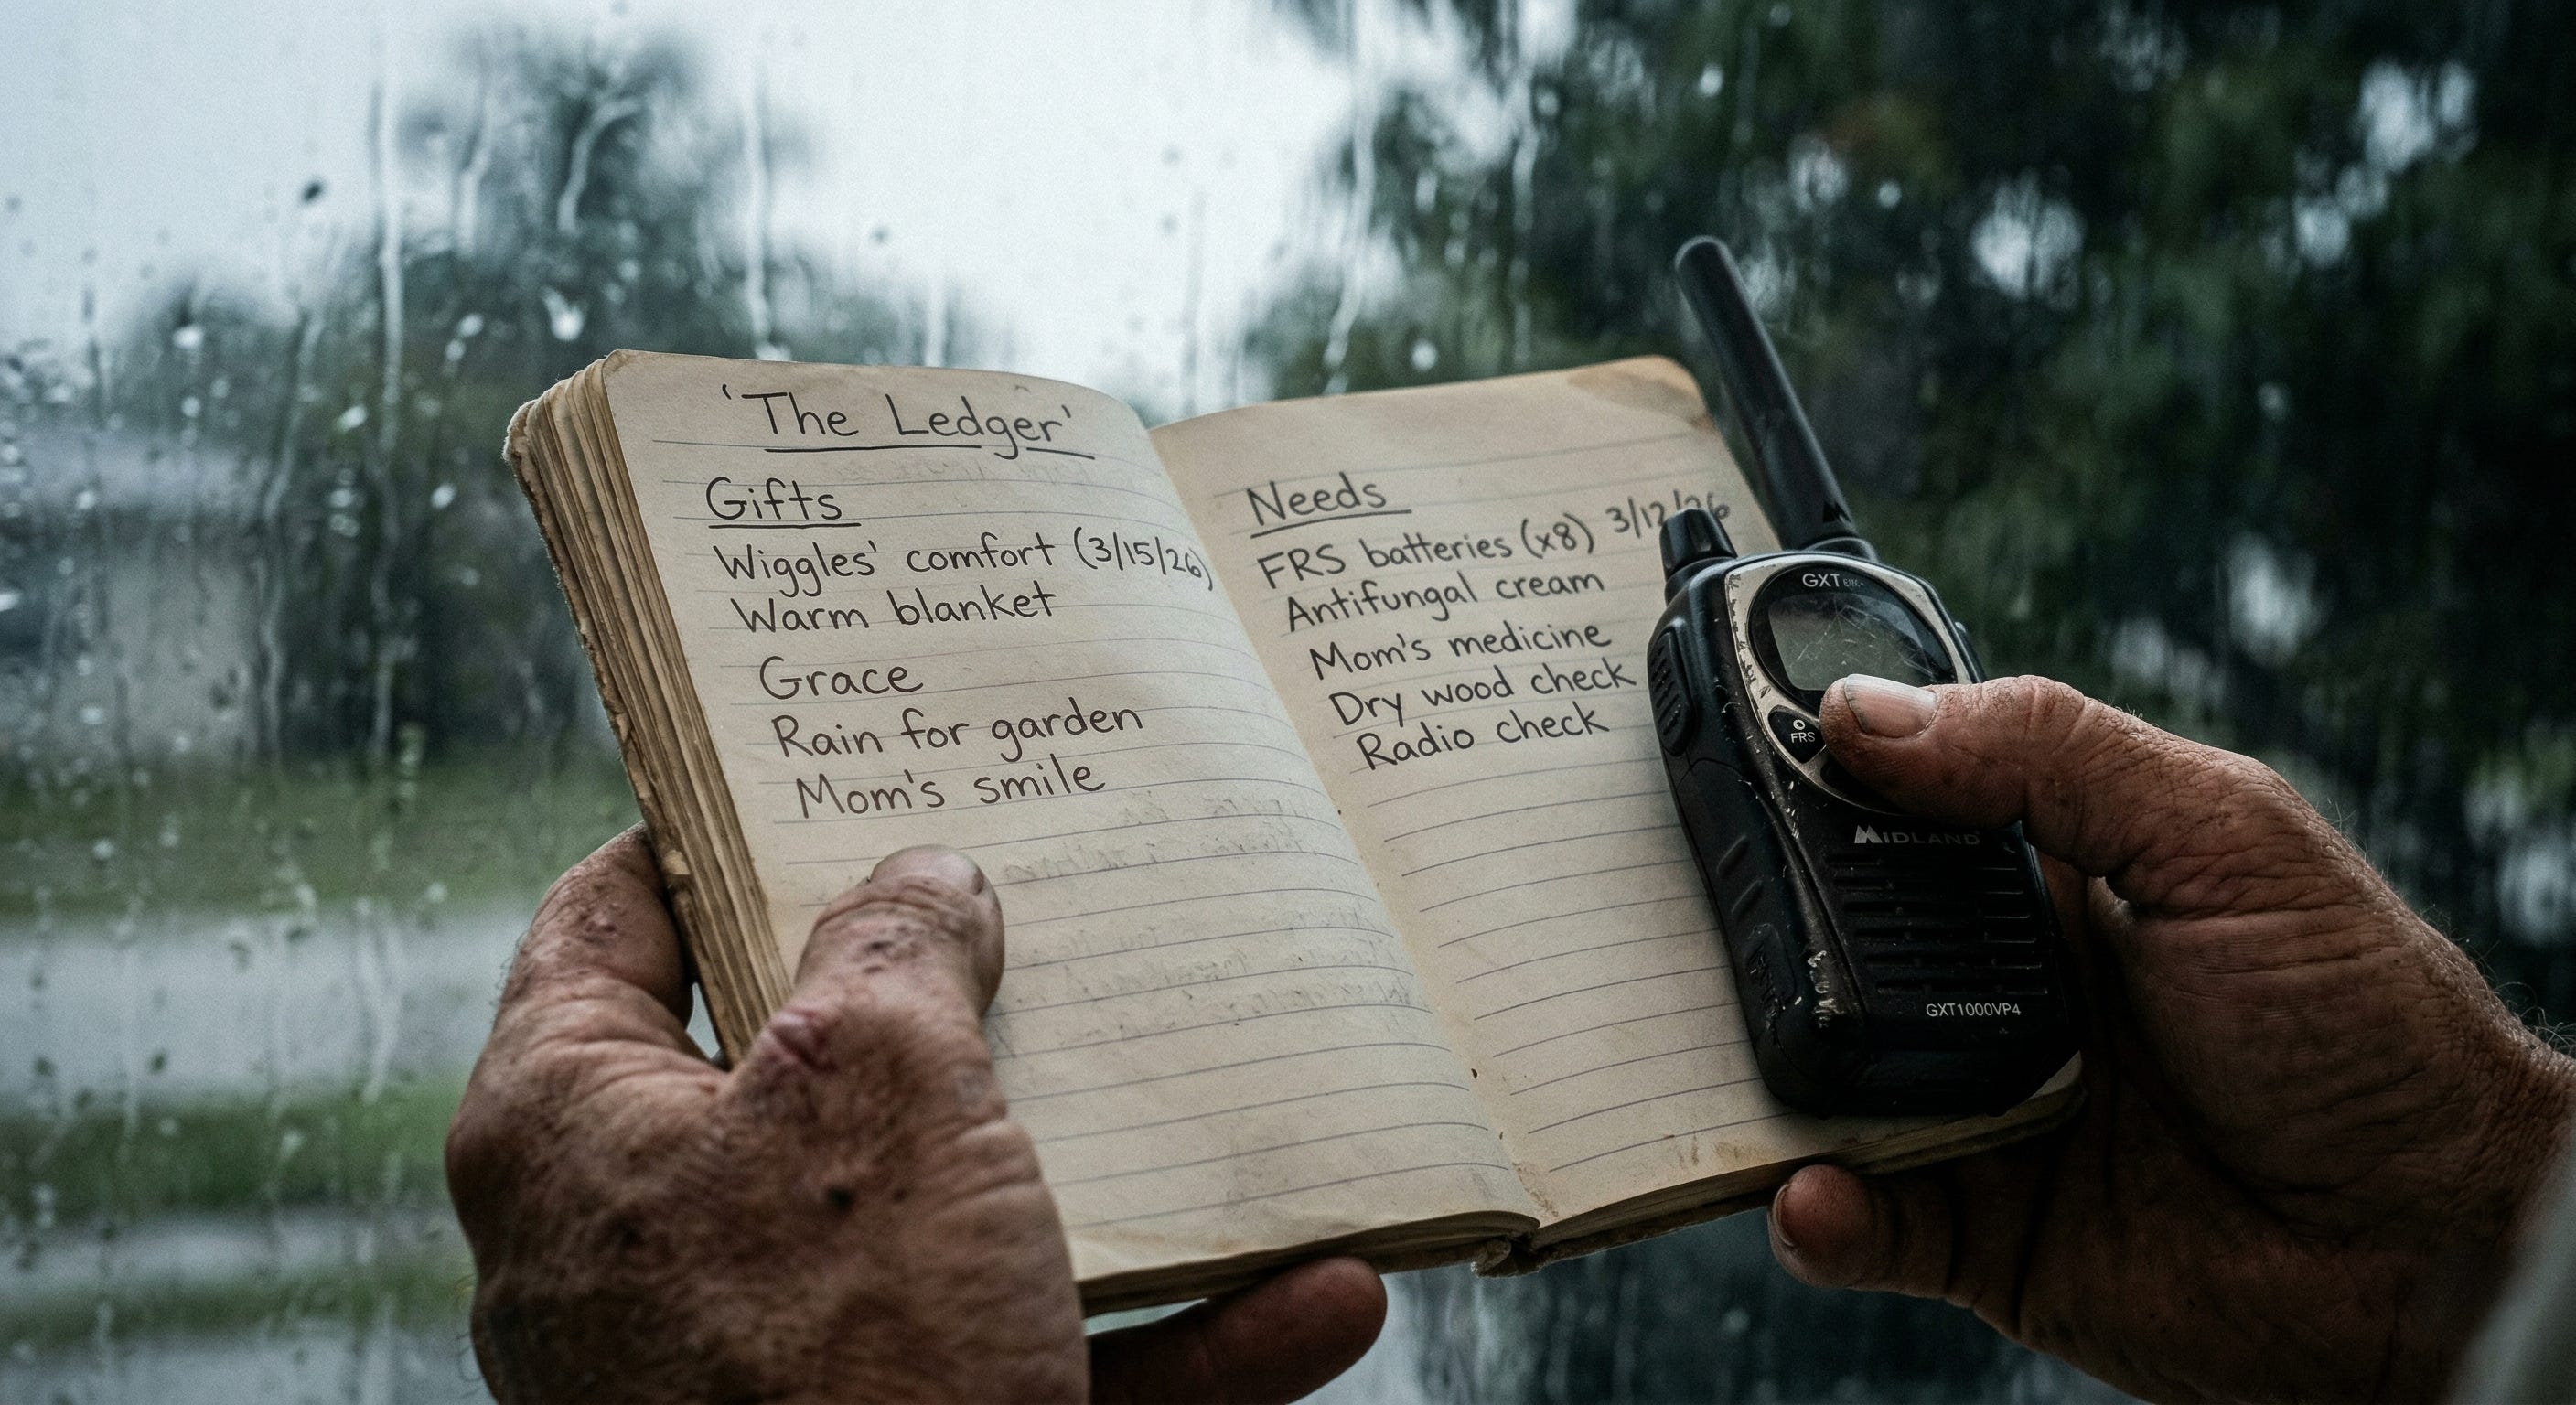 'The Ledger'
Gifts
Wiggles' comfort (3/15/26)
Warm blanket
Grace
Rain for garden
Mom's smile
Needs
FRS batteries (x8) 3/12/26
Antifungal cream
Mom's medicine
Dry wood check
Radio check
GXT
FRS
MIDLAND
GXT1000VP4